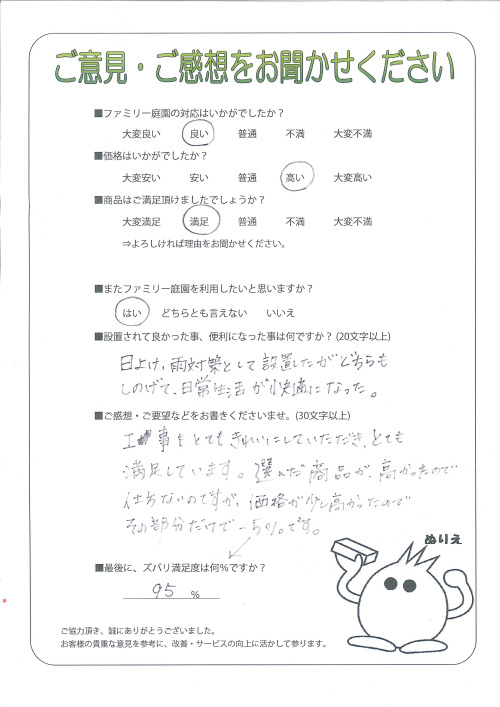 ご意見・ご感想をお聞かせください
■ファミリー庭園の対応はいかがでしたか？
大変良い 良い 普通 不満 大変不満
■価格はいかがでしたか？
大変安い 安い 普通 高い 大変高い
■商品はご満足頂けましたでしょうか？
大変満足 満足 普通 不満 大変不満
⇒よろしければ理由をお聞かせください。
■またファミリー庭園を利用したいと思いますか？
はい どちらとも言えない いいえ
■設置されて良かった事、便利になった事は何ですか？(20文字以上)
日よけ，雨対策として設置したがどちらも
しのげて、日常生活が快適になった。
■ご感想・ご要望などをお書きくださいませ。(30文字以上)
工事もとてもきれいにしていただき、とても
満足しています。選んだ商品が、高かったので
仕方ないのですが、価格が少し高かったので
その部分だけで－5％です。
ぬりえ
■最後に、ズバリ満足度は何％ですか？
95 ％
ご協力頂き、誠にありがとうございました。
お客様の貴重な意見を参考に、改善・サービスの向上に活かして参ります。